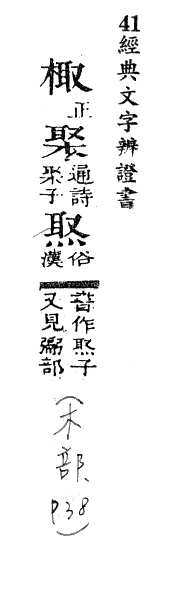 41經典文字辨證書
棷正
聚通詩聚子
焣俗漢
作焣子
又見部
(木部P38)